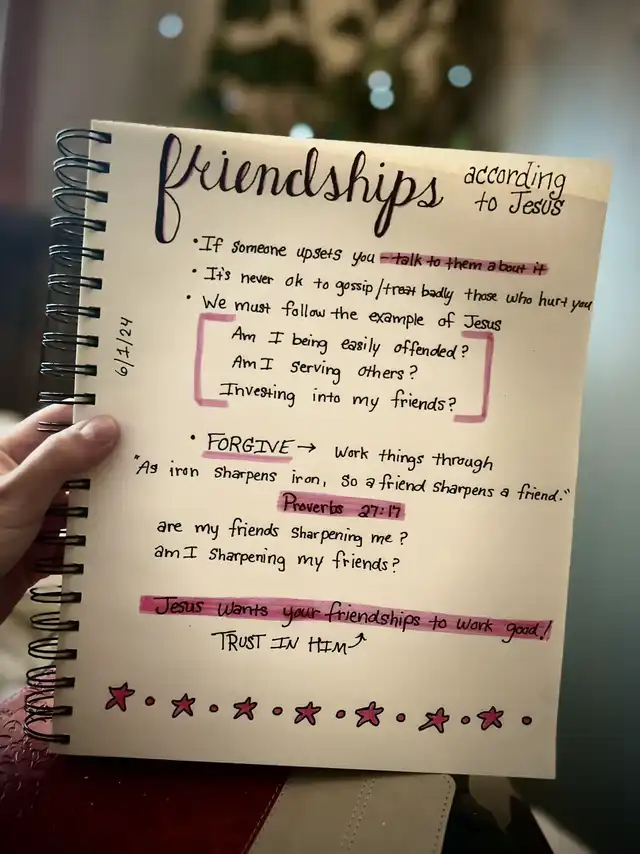 friendships according to Jesus
•If someone upsets you - talk to them about it
• It's never ok to gossip/treat badly those who hurt you
• We must follow the example of Jesus
Am I being easily offended?
Am I serving others?
Investing into my friends?
6/1/24
• FORGIVE → work things through
"As iron sharpens iron, so a friend sharpens a friend."
Proverbs 27:17
are my friends sharpening me?
am I sharpening my friends?
Jesus wants your friendships to work good!
TRUST IN HIM